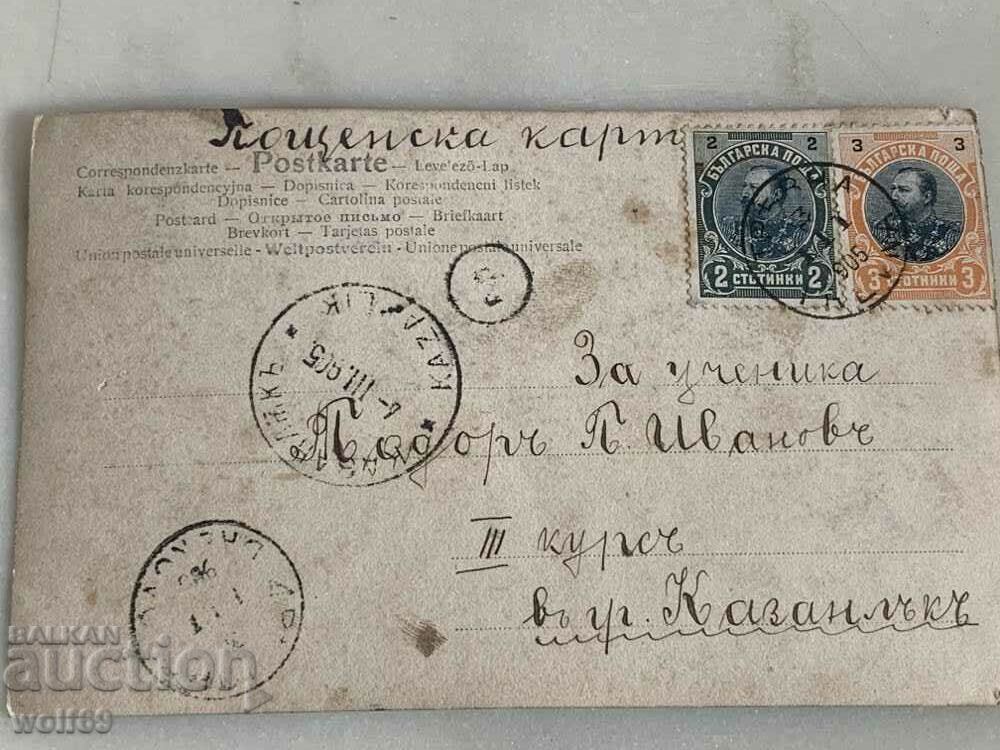 Пощенска карт
Correspondenzkarte – Postkarte – Levelező-Lap
Karta korespondencyjna – Dopisnica – Korespondencni listek
Dopisnice – Cartolina postale
Postcard – Открытое письмо – Briefkaart
Brevkort – Tarjetas postale
Union postale universelle – Weltpostverein – Unione postale universale
2 2
БЪЛГАРСКА ПОЩА
2 СТОТИНКИ 2
3 3
БЪЛГАРСКА ПОЩА
3 СТОТИНКИ 3
905
KAZANLIK
4 III.905
КАЗАНЛЪКЪ
За ученика
Тодоръ П. Ивановъ
III курсъ
въ гр. Казанлъкъ
BALKAN
auction
wolf69